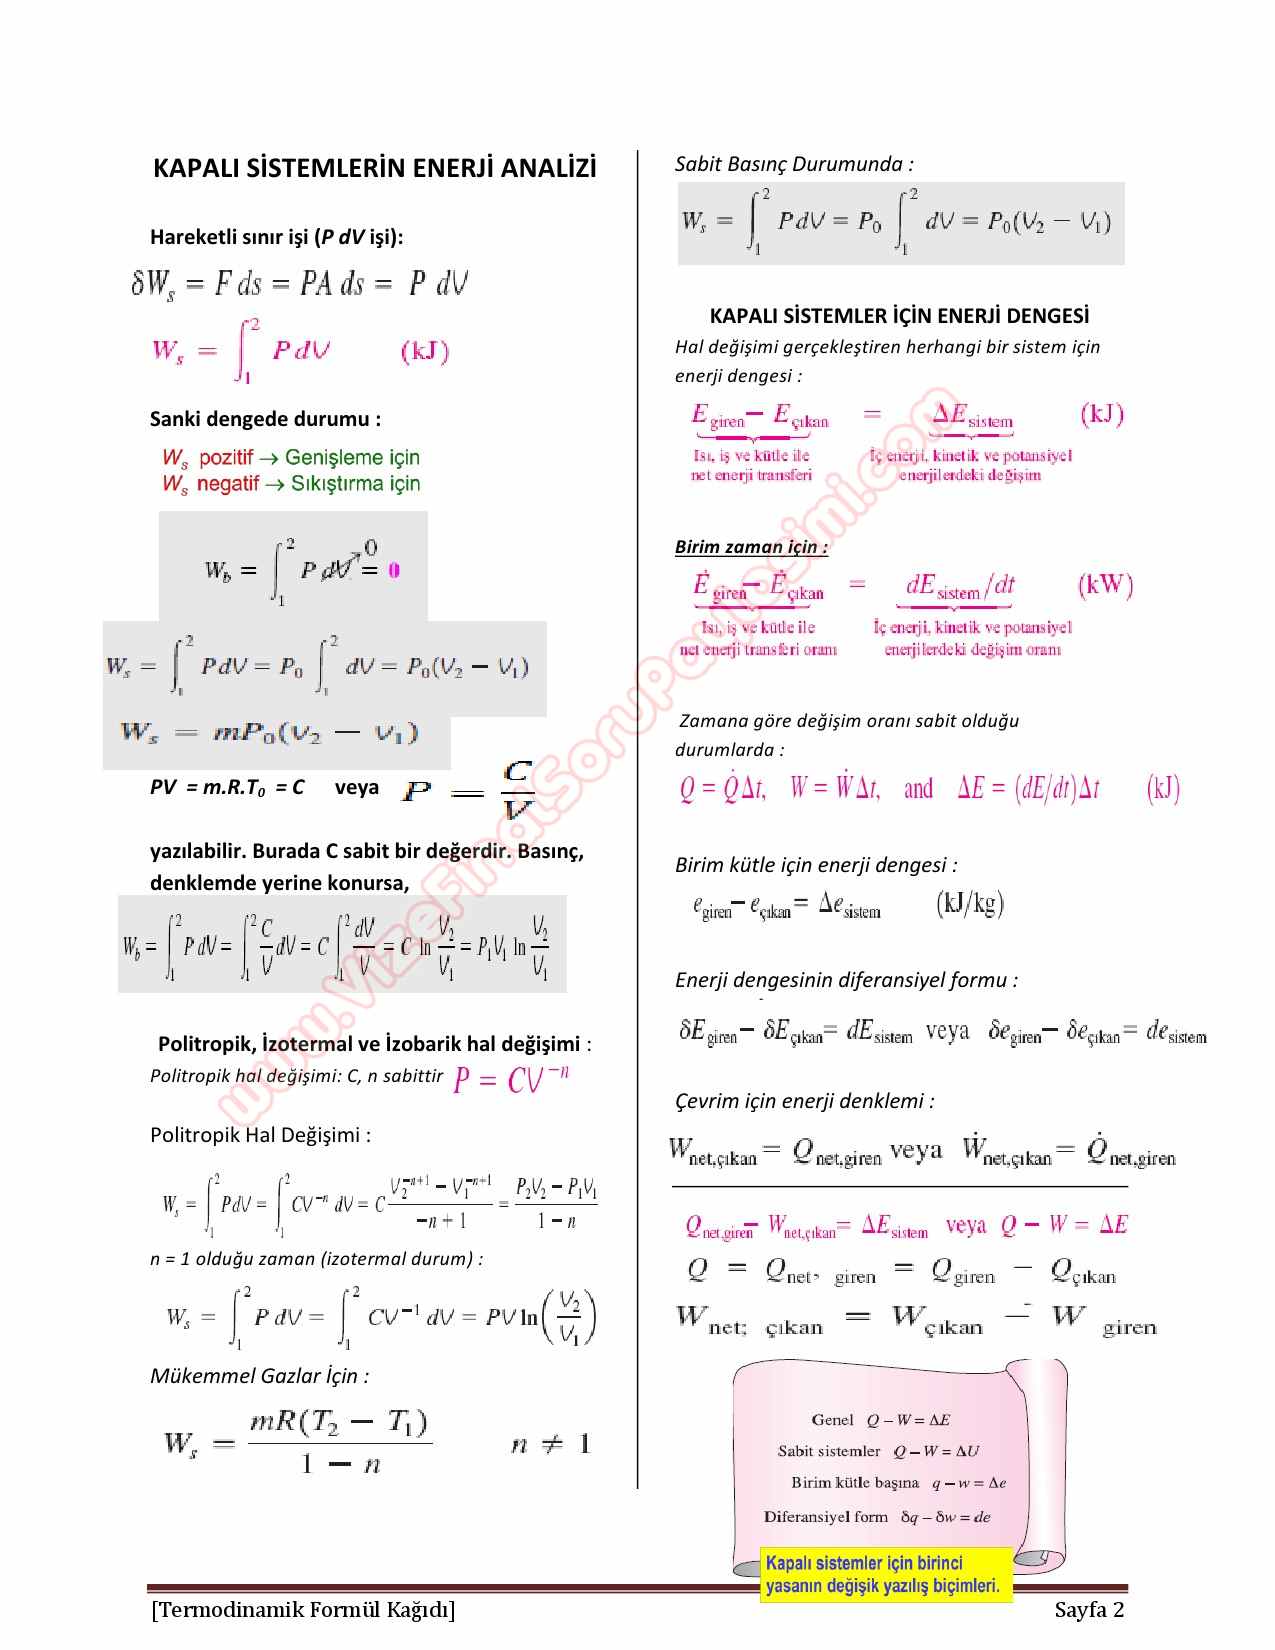 KAPALI SİSTEMLERİN ENERJİ ANALİZİ
Hareketli sınır işi (P dV işi):
δW_s = F ds = PA ds = P dV
W_s = ∫₁² P dV (kJ)
Sanki dengede durumu :
W_s pozitif → Genişleme için
W_s negatif → Sıkıştırma için
W_b = ∫₁² P dV = 0
0
W_s = ∫₁² P dV = P₀ ∫₁² dV = P₀(V₂ − V₁)
W_s = mP₀(v₂ − v₁)
PV = m.R.T₀ = C veya P = C/V
yazılabilir. Burada C sabit bir değerdir. Basınç,
denklemde yerine konursa,
W_b = ∫₁² P dV = ∫₁² C/V dV = C ∫₁² dV/V = C ln V₂/V₁ = P₁V₁ ln V₂/V₁
Politropik, İzotermal ve İzobarik hal değişimi :
Politropik hal değişimi: C, n sabittir P = CV⁻ⁿ
Politropik Hal Değişimi :
W_s = ∫₁² PdV = ∫₁² CV⁻ⁿ dV = C (V₂⁻ⁿ⁺¹ − V₁⁻ⁿ⁺¹)/(−n + 1) = (P₂V₂ − P₁V₁)/(1 − n)
n = 1 olduğu zaman (izotermal durum) :
W_s = ∫₁² P dV = ∫₁² CV⁻¹ dV = PV ln(V₂/V₁)
Mükemmel Gazlar İçin :
W_s = mR(T₂ − T₁)/(1 − n) n ≠ 1
Sabit Basınç Durumunda :
W_s = ∫₁² P dV = P₀ ∫₁² dV = P₀(V₂ − V₁)
KAPALI SİSTEMLER İÇİN ENERJİ DENGESİ
Hal değişimi gerçekleştiren herhangi bir sistem için
enerji dengesi :
E_giren − E_çıkan = ΔE_sistem (kJ)
Isı, iş ve kütle ile İç enerji, kinetik ve potansiyel
net enerji transferi enerjilerdeki değişim
Birim zaman için :
Ė_giren − Ė_çıkan = dE_sistem/dt (kW)
Isı, iş ve kütle ile İç enerji, kinetik ve potansiyel
net enerji transferi oranı enerjilerdeki değişim oranı
Zamana göre değişim oranı sabit olduğu
durumlarda :
Q = Q̇ Δt, W = Ẇ Δt, and ΔE = (dE/dt)Δt (kJ)
Birim kütle için enerji dengesi :
e_giren − e_çıkan = Δe_sistem (kJ/kg)
Enerji dengesinin diferansiyel formu :
δE_giren − δE_çıkan = dE_sistem veya δe_giren − δe_çıkan = de_sistem
Çevrim için enerji denklemi :
W_net,çıkan = Q_net,giren veya Ẇ_net,çıkan = Q̇_net,giren
Q_net,giren − W_net,çıkan = ΔE_sistem veya Q − W = ΔE
Q = Q_net, giren = Q_giren − Q_çıkan
W_net; çıkan = W_çıkan − W_giren
Genel Q – W = ΔE
Sabit sistemler Q – W = ΔU
Birim kütle başına q – w = Δe
Diferansiyel form δq – δw = de
Kapalı sistemler için birinci
yasanın değişik yazılış biçimleri.
www.VizeFinalSoruPaylosimi.com
[Termodinamik Formül Kağıdı] Sayfa 2